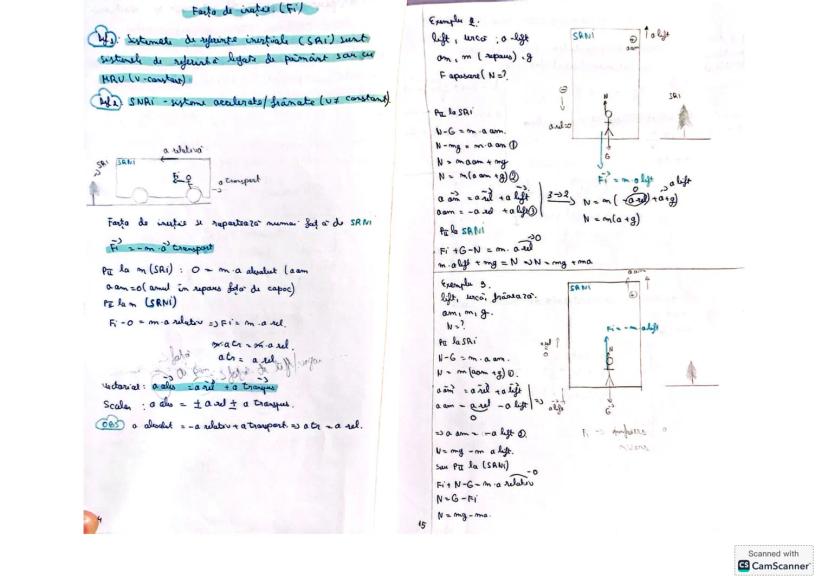 Forța de inerție. (Fi)
Def1: Sistemele de referință inerțiale (SRi) sunt
sistemele de referință legate de pământ sau cu
MRU (v-constant)
Def2: SNRi - sisteme accelerate/frânate (v≠ constant)
a relativă
SRi
SRNi
Fi
a transport
Forța de inerție se raportează numai față de SRNi
Fi = -m·a transport
PII la m (SRi): 0 = m·a absolut (aam
aam=0 (omul în repaus față de capac)
PII la m (SRNi)
Fi - 0 = m·a relativ => Fi = m·a rel.
m·atr = m·a rel.
atr = a rel.
vectorial: a abs = a rel + a transport
Scalar: a abs = ± a rel ± a transpus.
OBS a absolut = -a relativ + a transport => atr = a rel.
4
Exemplu 2.
lift, urcă, a-lift
am, m (repaus), g
F apăsare (N=?
PII la SRi
N-G = m·a am.
N-mg = m·a am ①
N = m aam + mg
N = m(a am + g) ②
a am = a rel + a lift
aam = -a rel + a lift ③
3→2
N = m(-a rel + a + g)
0
a lift
N = m(a+g)
PII la SRNi
Fi + G - N = m·a rel
0
m·a lift + mg = N => N = mg + ma
SRNi
a lift
aam
SRi
N
a rel=0
G
Fi = m·a lift
Exemplu 3.
lift, urcă, frânează.
am, m, g.
N=?
PII la SRi
N-G = m·a am.
N = m(aam + g) ①.
a am = a rel + a lift
aam = a rel - a lift
0
=>
=> a am = -a lift ②.
N = mg - m a lift.
sau PII la (SRNi)
Fi + N - G = m·a relativ
0
N = G - Fi
N = mg - ma.
SRNi
aam
Fi = -m·a lift
a rel
0
N
a lift
G
15
Scanned with
CS CamScanner